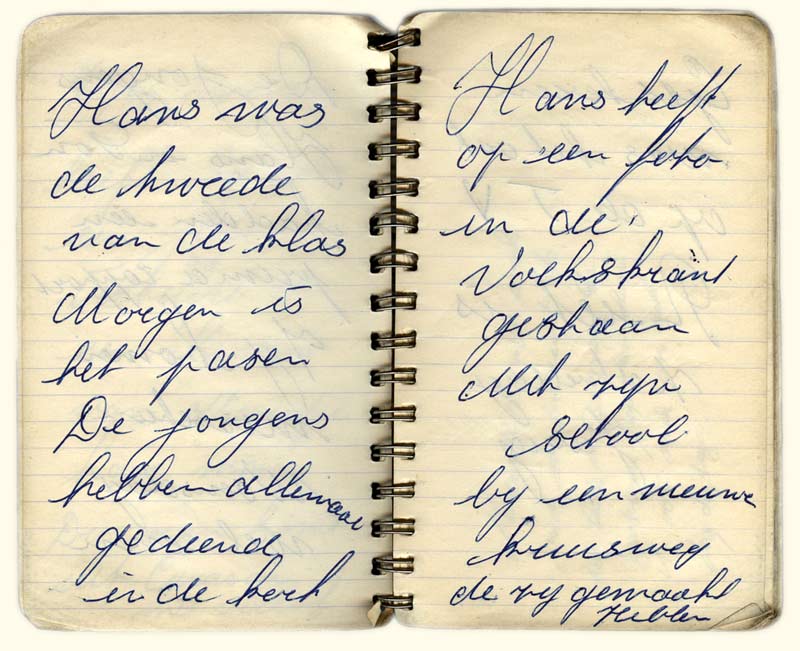 Hans was
de tweede
van de klas
Morgen is
het pasen
De jongens
hebben allemaal
gediend
in de kerk
Hans heeft
op een foto
in de
Volkskrant
gestaan
Met zyn
School
by een nieuwe
kruisweg
de zy gemaakt
Hebben